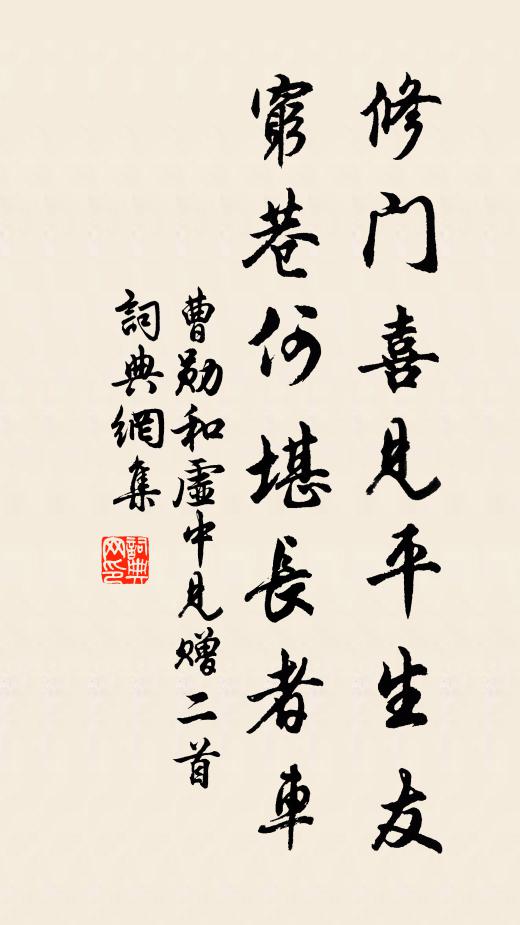 修门喜見平生友
窮巷何堪長者車
曹勛和虛中見贈二首
詞典網集
詞典网印